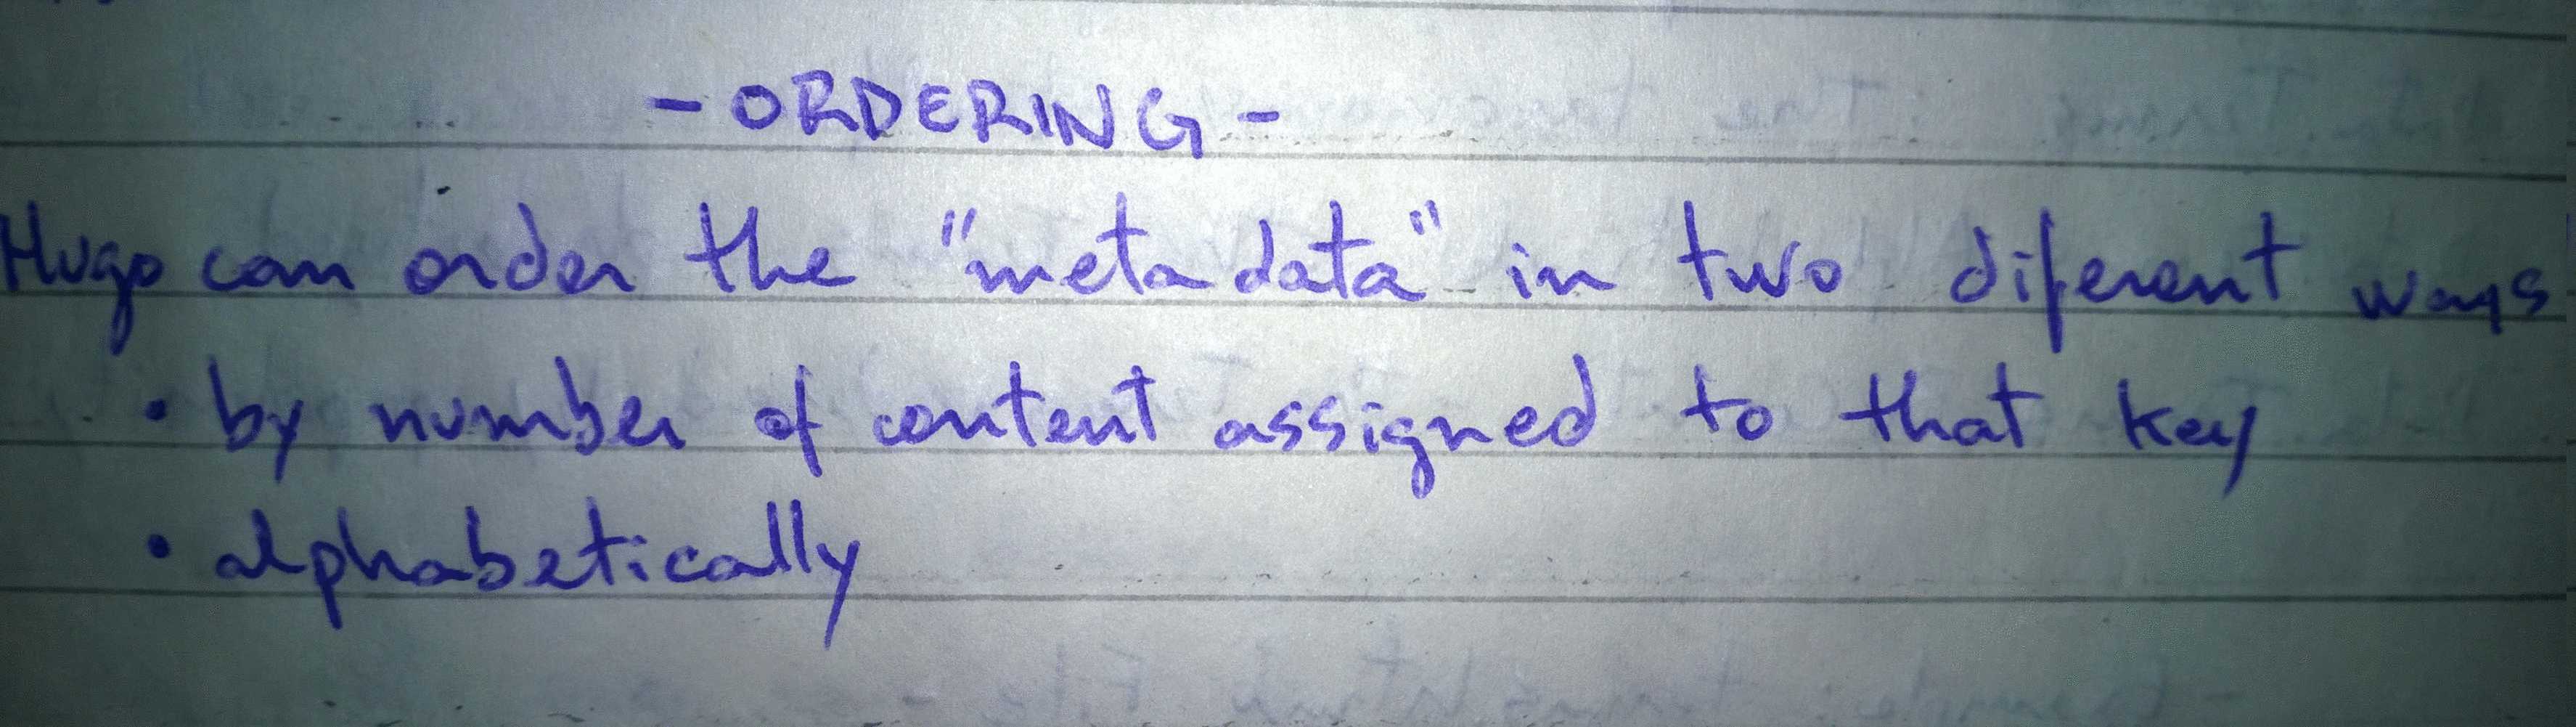 - ORDERING -
Hugo can order the "metadata" in two diferent ways
• by number of content assigned to that key
• alphabetically